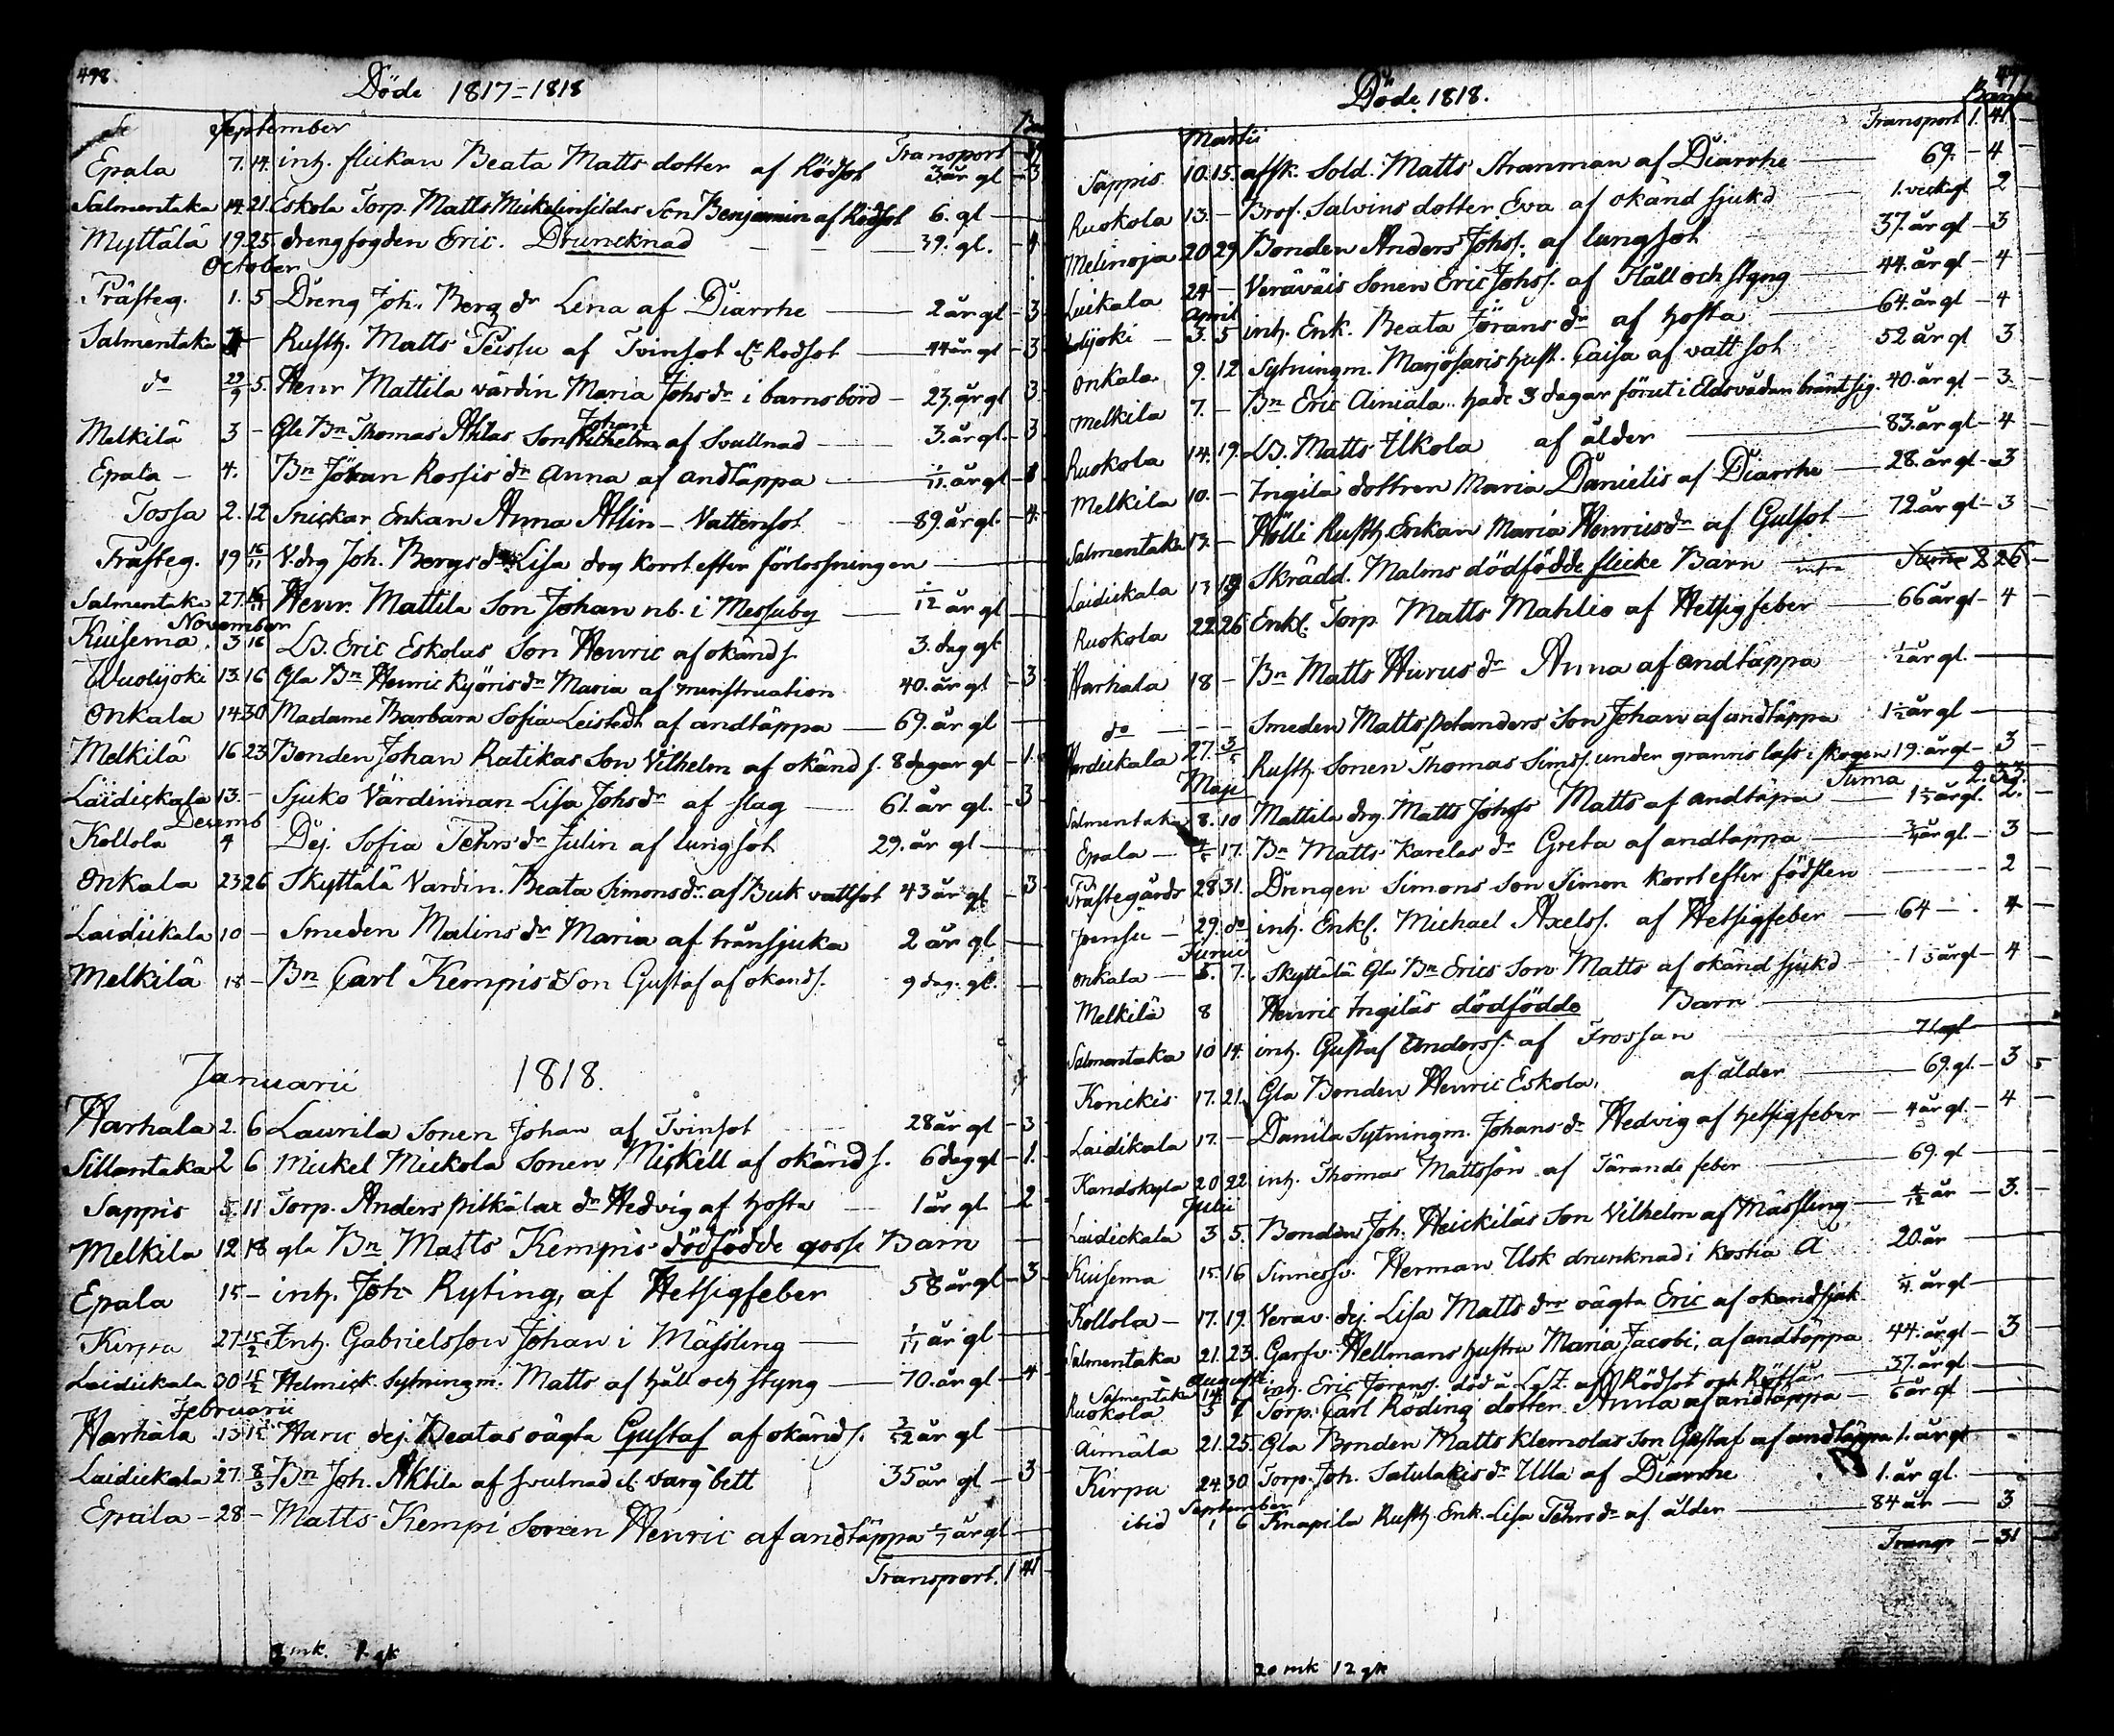 498
Döde 1817-1818
September
Transport
Epala 7. 14. inh. flickan Beata Matts dotter af Rödsot 3 år gl - 3
Salmentaka 14. 21. Eskola Torp. Matts Son Benjamin af Rödsot 6. gl
Myttälä 19 25. drengfogden Eric. Druncknad 39. gl. - 4
October
Prästeg. 1. 5 Dreng Joh. Berg dr Lena af Diarrhe 2 år gl - 3
Salmentaka - Rusth. Matts Peissu af Tvinsot & Rodsot 44 år gl - 3
do 29/9 5. Henr Mattila värdin Maria Johs dr i barnsbörd - 23. år gl 3
Melkilä 3 - Gle Bn Thomas Ahlas Son Johan Wilhelm af Svullnad 3. år gl. - 3
Epala - 4. Bn Johan Rossis dr Anna af andtäppa 1/11. år gl - 1
Tossa 2. 12 Snickar Enkan Anna Ahlin - Vattensot 89. år gl. - 4.
Präste g. 19 16/11 V. drg Joh. Bergs dr Lisa dog kort efter förlossningen
Salmentaka 27. 16/11 Henr. Mattila Son Johan nb. i Messuby 1/12 år gl
November
Kuisema. 3 16 LB. Eric Eskolas Son Henric af okänd s. 3. dag gl
Wuolijoki 13. 16 Gla Bn Henric Kyöris dr Maria af menstruation 40. år gl - 3
Onkala 14 30 Madame Barbara Sofia Leistedt af andtäppa 69. år gl
Melkilä 16 23 Bonden Johan Ratikas Son Vilhelm af okänd s. 8 dagar gl - 1.
Laidickala 13. - Sjuko Värdinnan Lisa Johs dr af slag 61. år gl. - 3
Decemb
Kollola 4 Dej. Sofia Tehrs dr Julin af lungsot 29. år gl
Onkala 23 26 Skyttälä Vardin. Beata Simons dr. af Buk vattsot 43 år gl - 3
Laidickala 10 - Smeden Malins dr Maria af trånsjuka 2 år gl
Melkilä 18 - Bn Carl Kempis Son Gustaf af okand s. 9 dag. gl.
Januarii 1818.
Harhala 2. 6 Laurila Sonen Johan af Tvinsot 28 år gl - 3
Sillantaka 2 6 Mickel Mickola Sonen Mickell af okänd s. 6 dag gl - 1.
Sappis 5. 11 Torp. Anders Pilkälax dr Hedvig af hosta 1 år gl - 2
Melkila 12 18 gla Bn Matts Kempis dödfödde gosse Barn
Epala 15 - inh. Joh Ryting, af Hetsigfeber 58 år gl - 3
Kirpa 27 15/2 Inh. Gabrielsson Johan i Mässling 1/11 år gl
Laidickala 30 15/2 Helmick. Sytningm. Matts af håll och styng 70. år gl - 4
Februarii
Harhala 13 15 Haru dej. Beatas oägta Gustaf af okänd s. 3/52 år gl
Laidickala 27. 8/3 Bn Joh. Ahtila af svulnad el. varg bett 35 år gl - 3
Epala - 28 - Matts Kempi Sonen Henric af andtäppa år gl
Transport. 1 41
mk. 1. gk
Döde 1818.
Martii
Transport 1. 41
Sappis. 10. 15. affsk. Sold. Matts Stranman af Diarrhe 69. - 4
Ruokola 13. - Prof. Salvins dotter Eva af okänd sjukd 1. veck gl 2
Melinoja 20 29 Bonden Anders Johss. af lungsot 37. år gl - 3
Luikala 24 - Veräväis Sonen Eric Johss. af Håll och styng 44. år gl - 4
April
3. 5 inh. Enk. Beata Jörans dr af hosta 64. år gl - 4
Onkala. 9. 12 Sytningm. Marjosaris hust. Caisa af vatt sot 52 år gl 3
Melkila 7. - Bn Eric Ainiala. hade 3 dagar förut i Eldsvådan bränt sig. 40. år gl - 3.
Ruokola 14. 19. LB. Matts Ilkola af ålder 83. år gl - 4
Melkila 10. - Ingilä dottren Maria Danielis af Diarrhe 28. år gl - 3
Salmentaka 13. - Hölli Rusth. Enkan Maria Henrics dr af Gulsot 72 år gl - 3
Laidickala 13 19 Skrädd. Malms dödfödde flicke Barn 2 26
Ruokola 22 26 Enkl. Torp. Matts Mahlio af Hetsigfeber 66 år gl - 4
Harhala 18 - Bn Matts Hurus dr Anna af andtäppa 1/2 år gl.
do - - Smeden Matts Petanders Son Johan af andtäppa 1 1/2 år gl
27. 3/5 Rusth. Sonen Thomas Simss. under grannis lass i skogen 19. år gl - 3
Suma 2. 33.
Maji
Salmentaka 8. 10 Mattila drg. Matts Johss Matts af andtäpa år gl. 2.
Epala 4/5 17. Bn Matts Karelas dr Greta af andtäppa 3/4 år gl. - 3
Prästegårds 28 31. Drengen Simons Son Simon kort efter födslen 2
29. do inh. Enkl. Michael Axelss. af Hetsigfeber 64 - 4
Junii
Onkala 5. 7. Skyttälä Gla Bn Erics Son Matts af okänd sjukd år gl - 4
Melkilä 8 Henric Ingiläs dödfödde Barn
Salmentaka 10 14. inh. Gustaf Anderss. af Frossan 71 gl
Konickis 17. 21. Gla Bonden Henric Eskola, af ålder 69. gl. - 3
Laidikala 17. - Danila Sytningm. Johans dr Hedvig af hetsigfeber 4 år gl. - 4
20 22. inh. Thomas Mattsson af Tärande feber 69. gl
Julii
Laidickala 3 5. Bonden Joh. Heickiläs Son Vilhelm af Mässling 4/12 år - 3.
Kuisema 15. 16 Sinnessv. Herman Usk drunknad i Kostia Å 20. år
Kollola - 17. 19. Verav. dej. Lisa Matts dr oägta Eric af okändsjuk år gl
Salmentaka 21. 23. Garfv. Hellmans hustru Maria Jacobi, af andtäppa 44. år gl - 3
Augusti
Salmentaka inh. Eric Jörans. död å af Rödsot och Rötfår 37. år gl
Ruokola 3 Torp. Carl Röding dotter Anna af andtäppa 1/6 år gl
Aimäla 21. 25. Gla Bonden Matts Klemolas Son Gustaf af andtäppa 1. år gl
Kirpa 24 30 Torp. Joh. Satulakis dr Ulla af Diarrhe 1. år gl.
September
ibid 1 6 Knapila Rusth. Enk. Lisa Tehrs dr af ålder 84 år - 3
Transp - 31
20 mk 12 gk